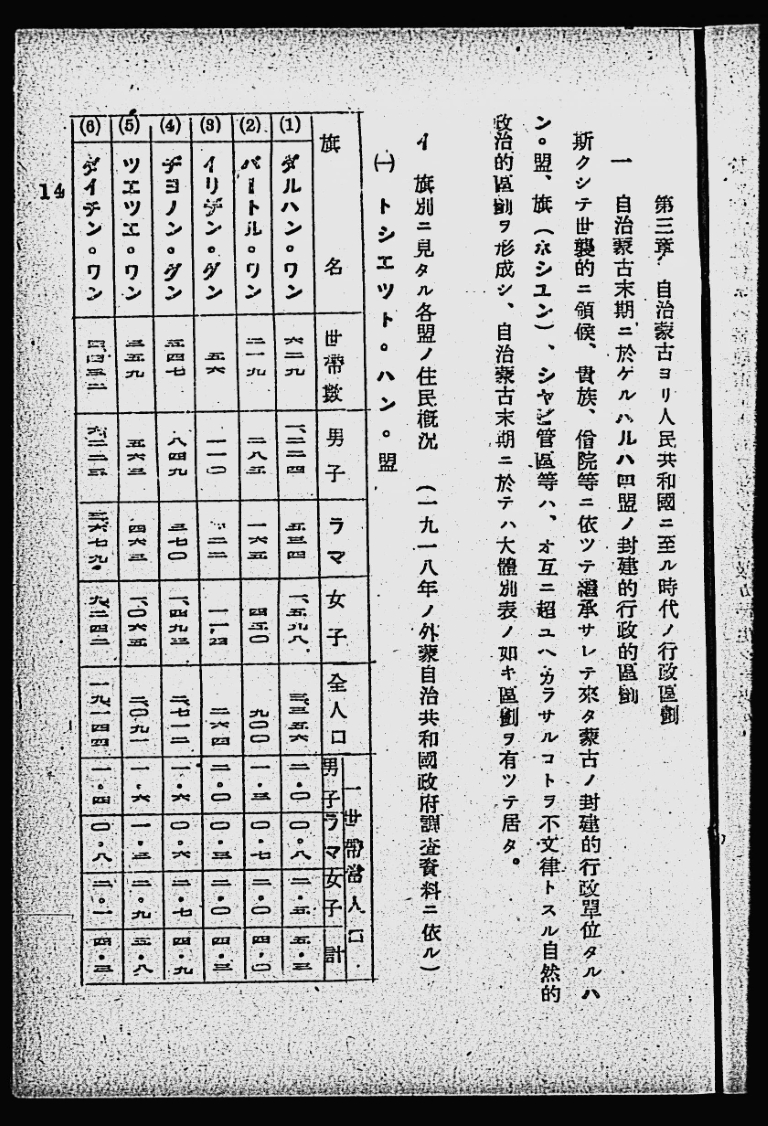 第三章 自治蒙古ヨリ人民共和國ニ至ル時代ノ行政區劃
一 自治蒙古末期ニ於ケルハルハ四盟ノ封建的行政的區劃
斯クシテ世襲的ニ領候、貴族、僧院等ニ依ツテ繼承サレテ來タ蒙古ノ封建的行政單位タルハ
ン。盟、旗(ホシユン)、シヤビ管區等ハ、オ互ニ超ユヘカラサルコトヲ不文律トスル自然的
政治的區劃ヲ形成シ、自治蒙古末期ニ於テハ大體別表ノ如キ區劃ヲ有ツテ居タ。
イ 旗別ニ見タル各盟ノ住民概況 (一九一八年ノ外蒙自治共和國政府調査資料ニ依ル)
㈠ トシエツト。ハン。盟
旗名 世帶數 男子 ラマ 女子 全人口 一世帶當人口 男子 ラマ 女子 計
(1) ダルハン。ワン 六二九 一、二二四 五三四 一、五九八 三、三五六 二・〇 〇・八 二・五 五・三
(2) バートル。ワン 二一九 二八五 一六五 四五〇 九〇〇 一・三 〇・七 二・〇 四・〇
(3) イリデン。グン 五六 一一〇 二・〇 〇・三 二・〇 四・三
(4) チヨノン。グン 五四七 八四九 三七〇 一、四九三 二、七一二 一・六 〇・六 二・七 四・九
(5) ツエツエ。ワン 三五九 五六三 四六三 一、〇六五 二、〇九一 一・六 一・三 二・九 五・八
(6) ダイチン。ワン 四、四三二 六、二二三 三、六七九 九、二四二 一九、一四四 一・四 〇・八 二・一 四・三
14